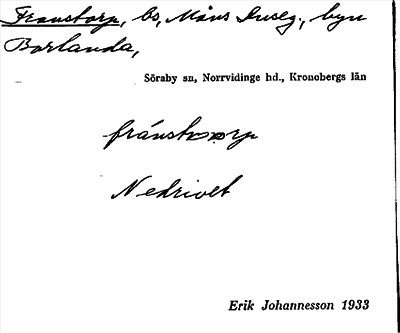 Franstorp, bs, Måns Duseg., byn
Borlanda,
Söraby sn, Norrvidinge hd., Kronobergs län
fránstårp
Nedrivet
Erik Johannesson 1933